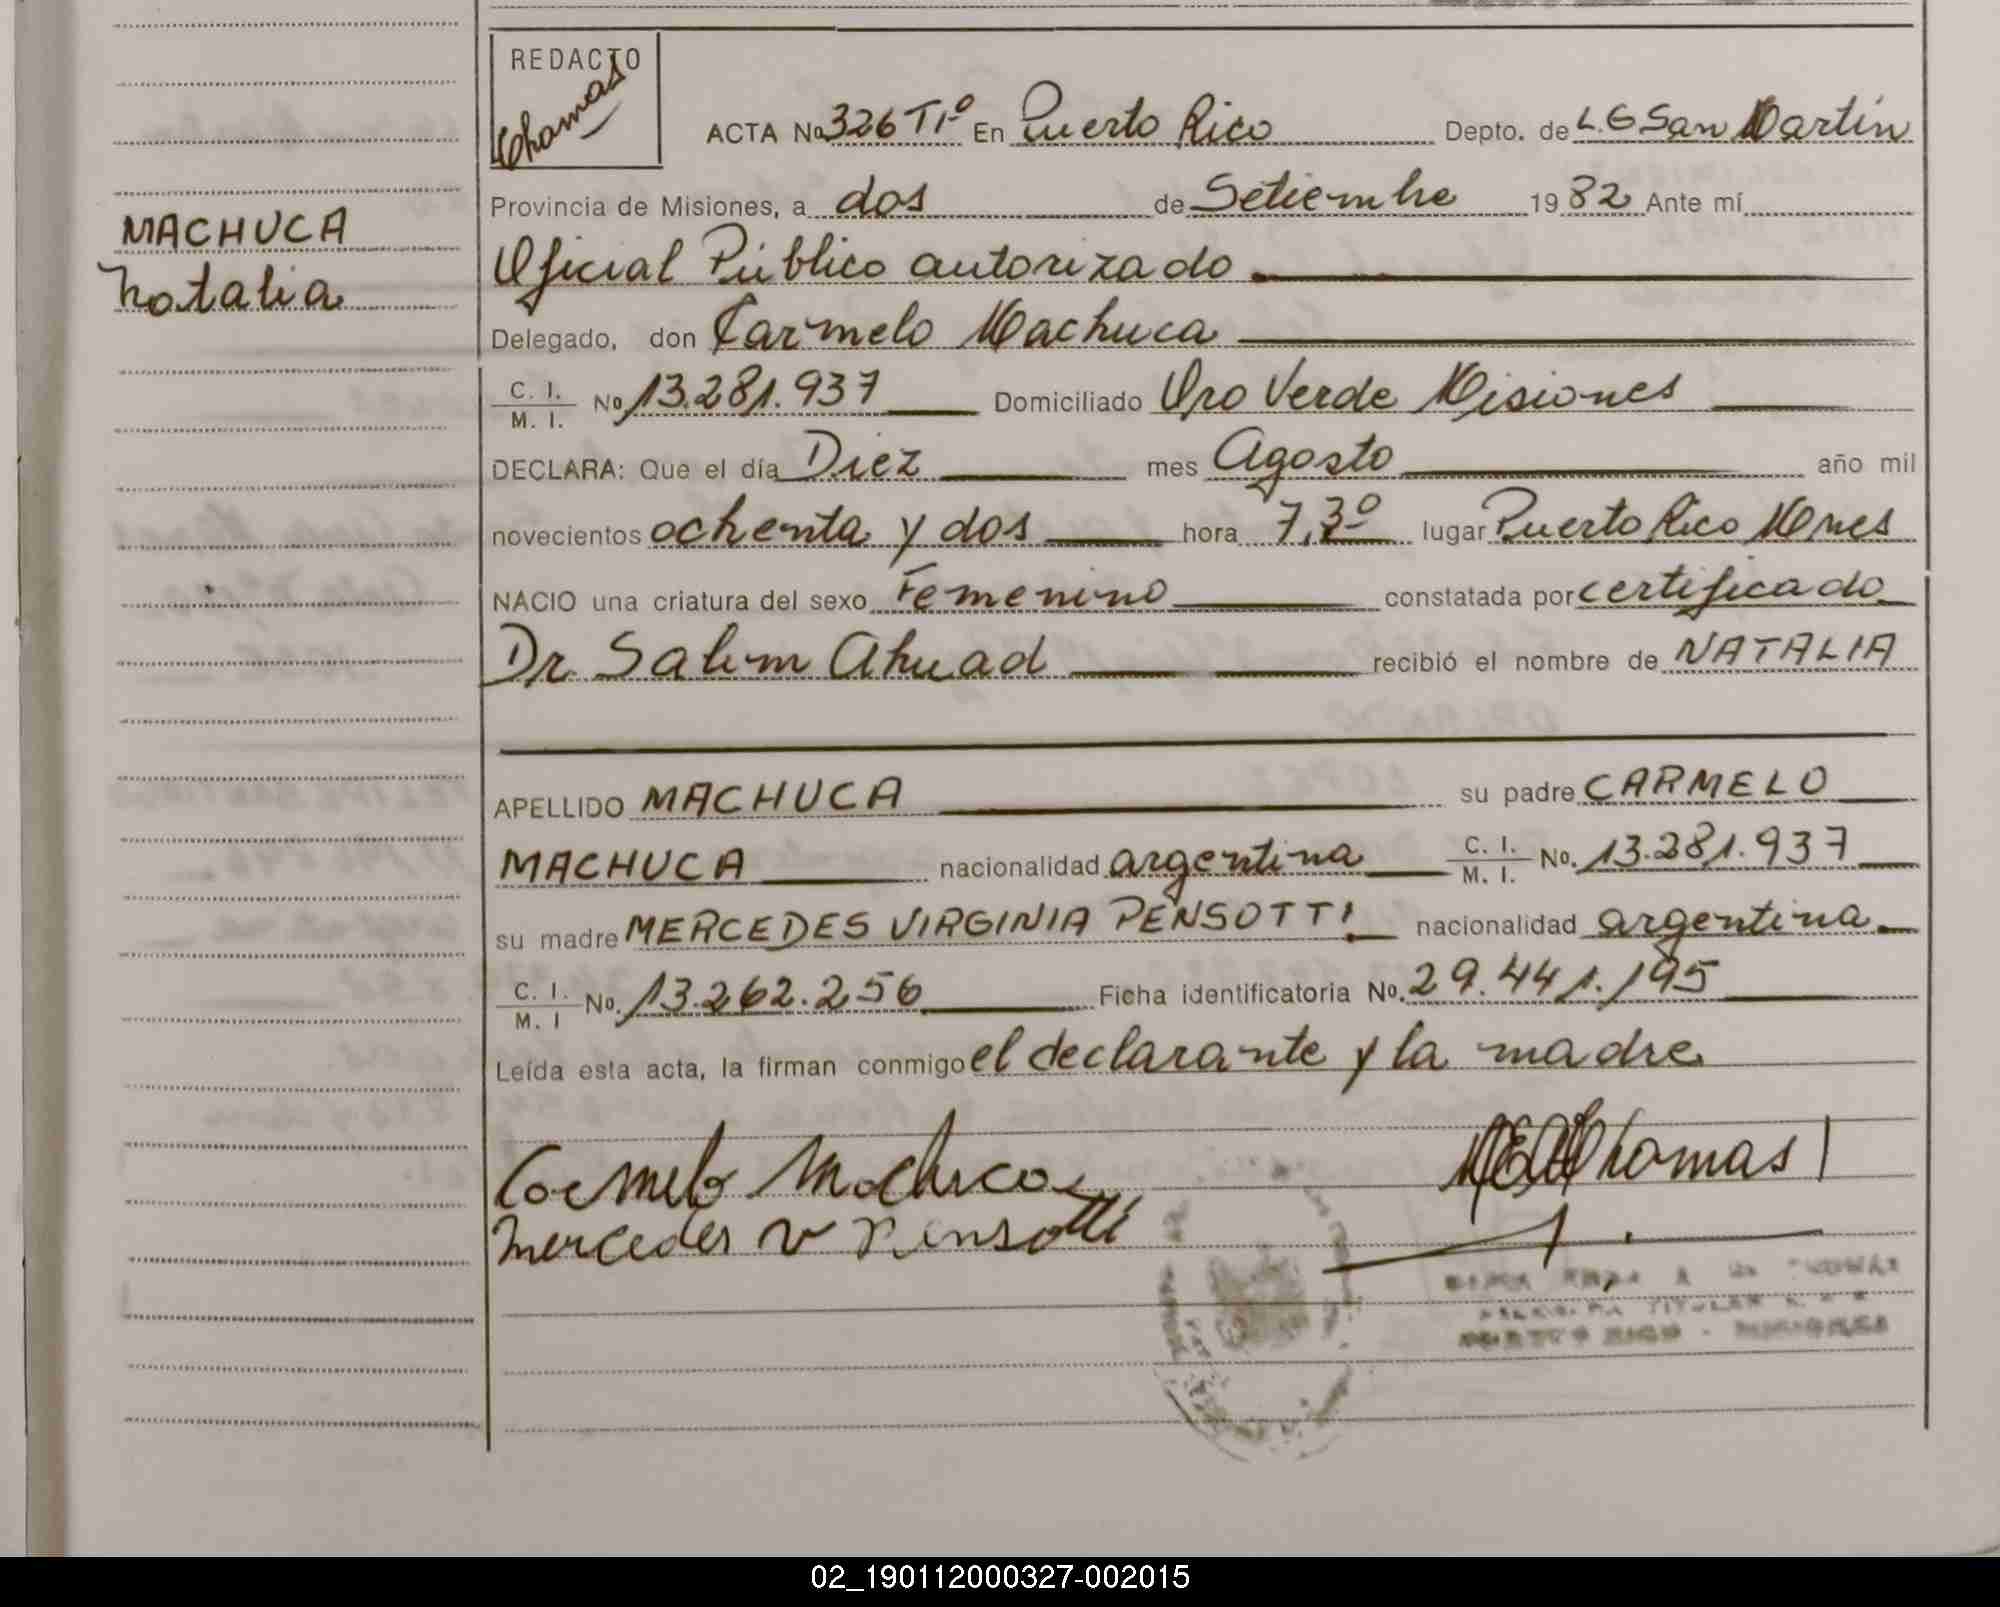 REDACTO
Chomas
ACTA No 326 Tº 1º En Puerto Rico Depto. de L.G San Martín
Provincia de Misiones, a dos de Setiembre 1982 Ante mí
MACHUCA
Natalia
Oficial Público autorizado
Delegado, don Carmelo Machuca
C. I. / M. I. No 13.281.937 Domiciliado Oro Verde Misiones
DECLARA: Que el día Diez mes Agosto año mil
novecientos ochenta y dos hora 7,30 lugar Puerto Rico Mnes
NACIO una criatura del sexo Femenino constatada por certificado
Dr Salim Ahuad recibió el nombre de NATALIA
APELLIDO MACHUCA su padre CARMELO
MACHUCA nacionalidad argentina C. I. / M. I. No. 13.281.937
su madre MERCEDES VIRGINIA PENSOTTI nacionalidad argentina
C. I. / M. I No. 13.262.256 Ficha identificatoria No. 29.441.195
Leída esta acta, la firman conmigo el declarante y la madre
Carmelo Machuca
Mercedes V Pensotti
TITULAR
PUERTO RICO - MISIONES
02_190112000327-002015